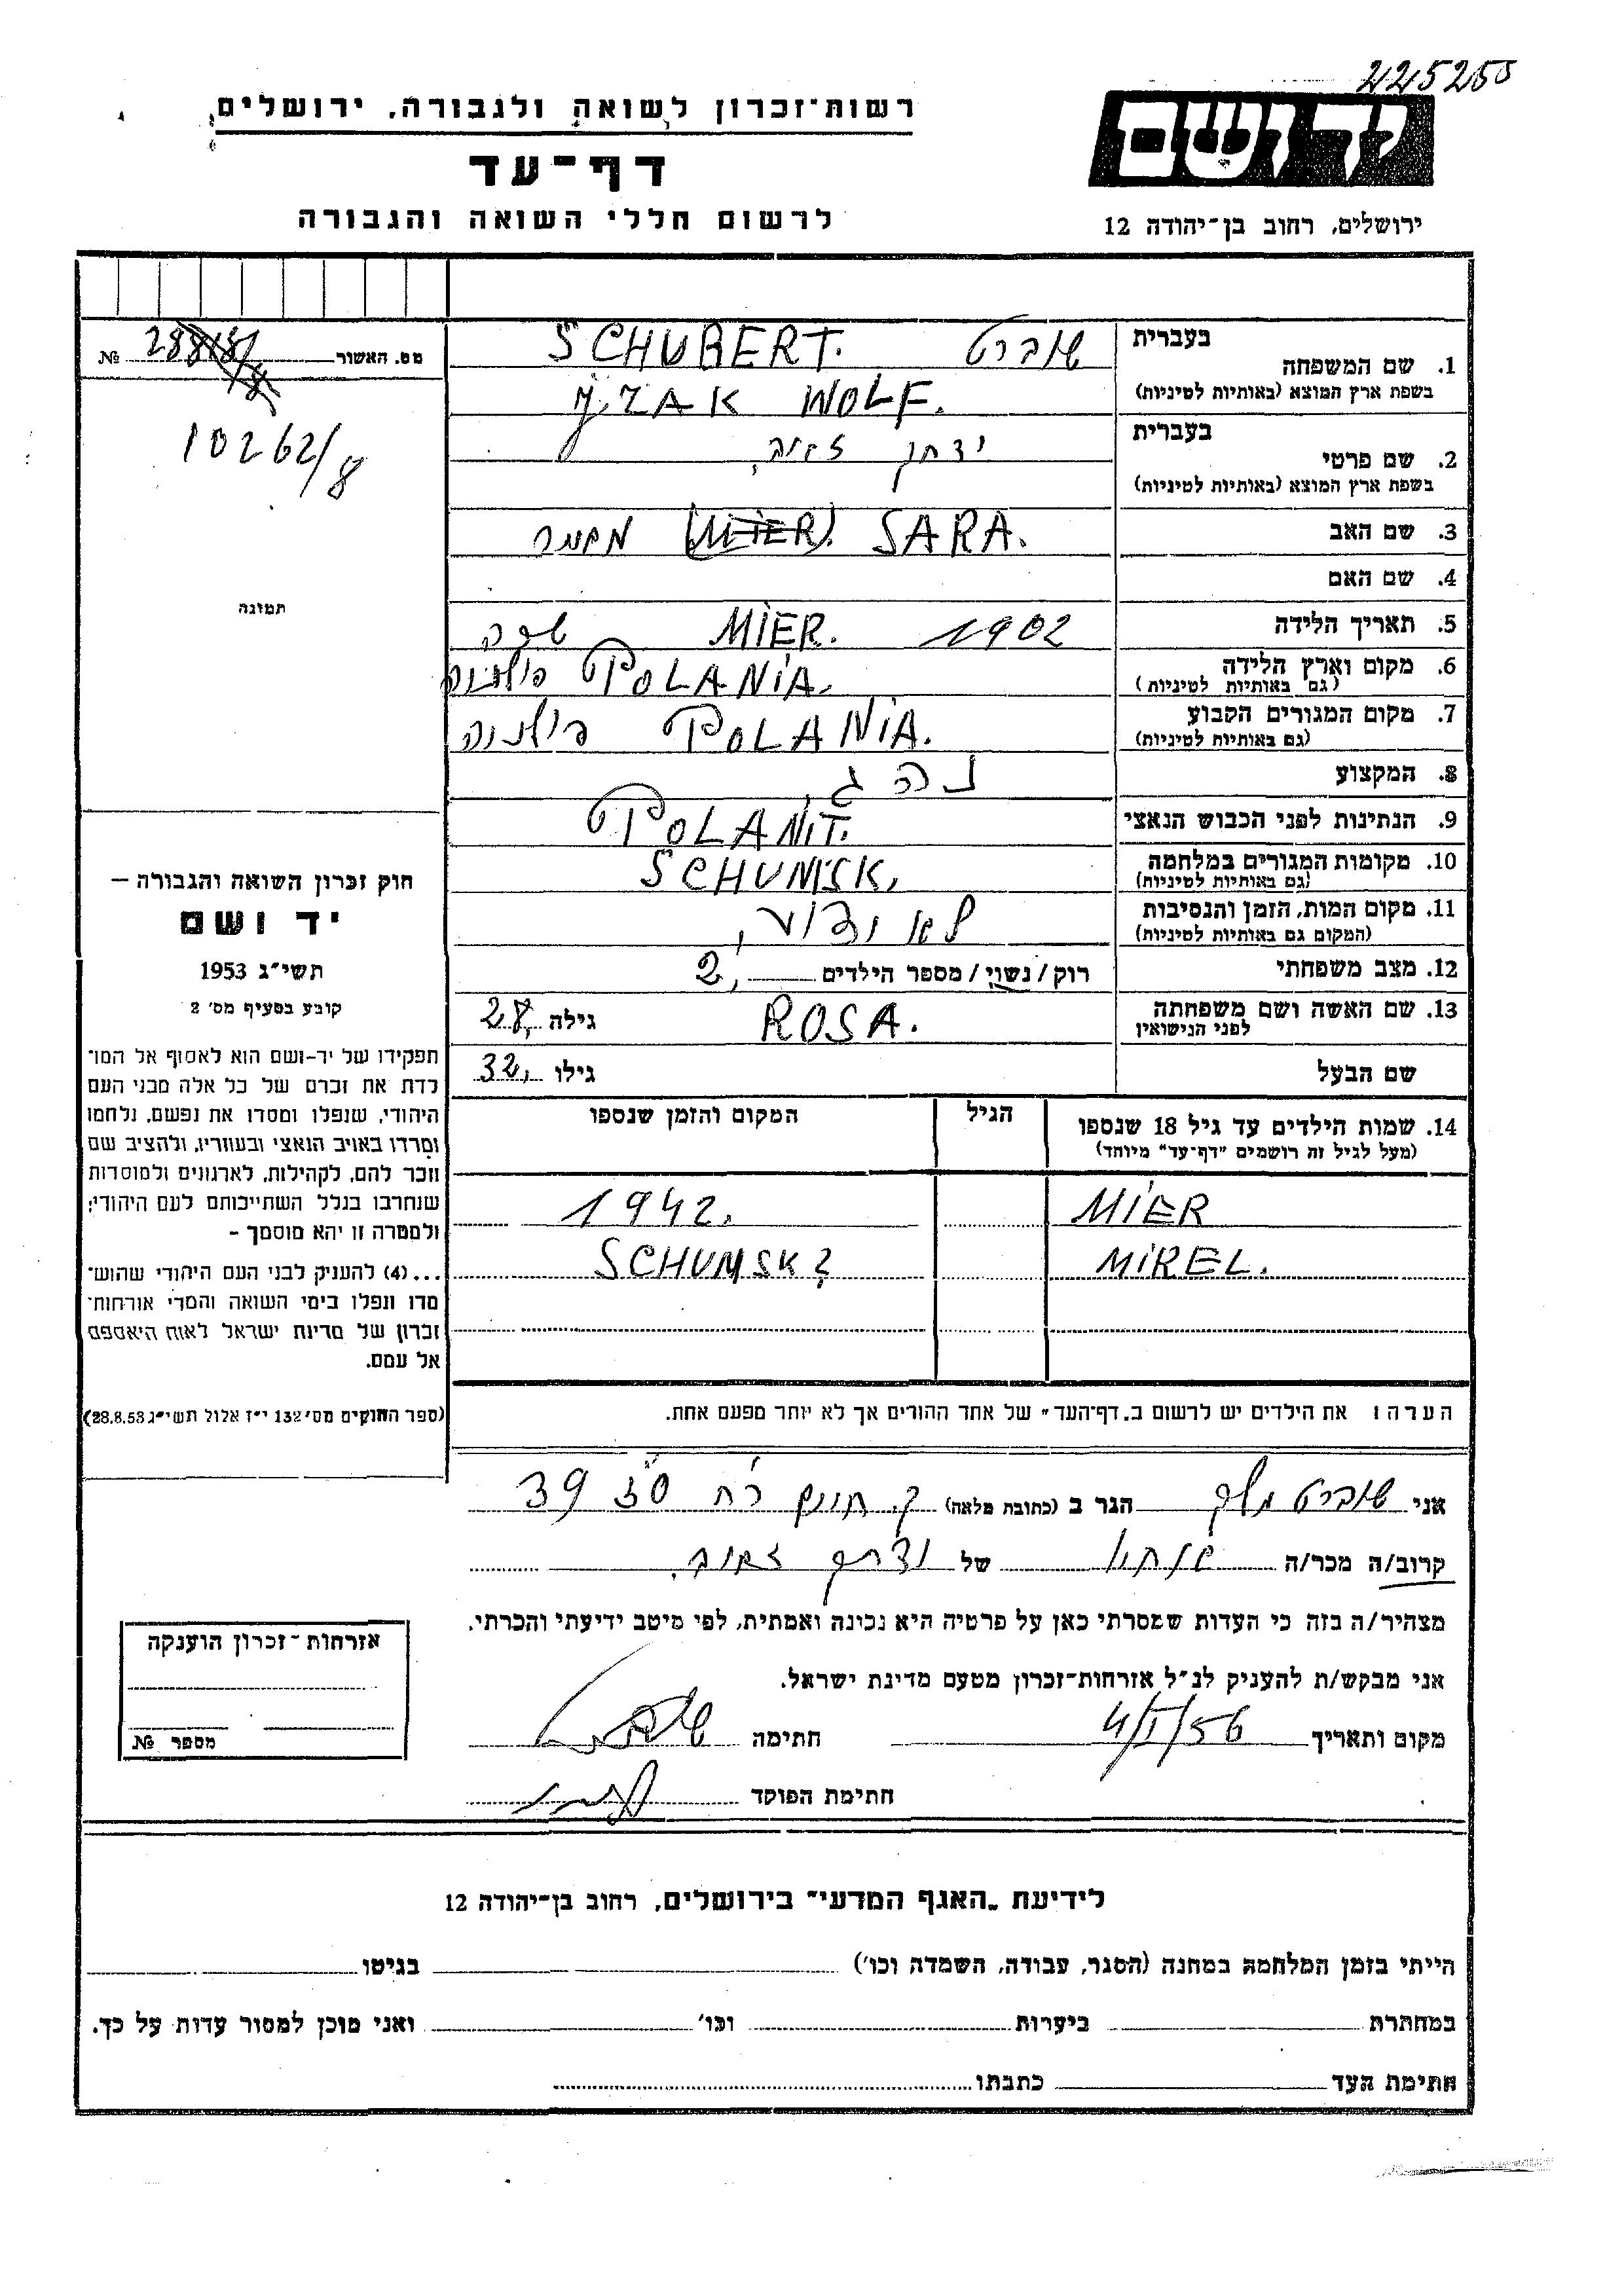 225255
רשות-זכרון לשואה ולגבורה, ירושלים
יד ושם
דף-עד
לרשום חללי השואה והגבורה
ירושלים, רחוב בן-יהודה 12
מס. האשור № 28818/
10262/8
תמונה
בעברית
1. שם המשפחה
בשפת ארץ המוצא (באותיות לטיניות)
שוברט SCHUBERT.
YZAK WOLF.
בעברית
2. שם פרטי
בשפת ארץ המוצא (באותיות לטיניות)
יצחק
3. שם האב (MIER) SARA.
4. שם האם
5. תאריך הלידה 1902 MIER. שרה
6. מקום וארץ הלידה POLANIA. פולניה
(גם באותיות לטיניות)
7. מקום המגורים הקבוע POLANIA. פולניה
(גם באותיות לטיניות)
8. המקצוע נהג
9. הנתינות לפני הכבוש הנאצי POLANIT.
10. מקומות המגורים במלחמה SCHUMSK,
(גם באותיות לטיניות)
11. מקום המות, הזמן והנסיבות לא ידוע,
(המקום גם באותיות לטיניות)
12. מצב משפחתי רוק/נשוי/מספר הילדים 2,
13. שם האשה ושם משפחתה ROSA. גילה 28,
לפני הנישואין
שם הבעל גילו 32,
14. שמות הילדים עד גיל 18 שנספו הגיל המקום והזמן שנספו
(מעל לגיל זה רושמים "דף-עד" מיוחד)
MIER 1942.
MIREL. SCHUMSK?
הערה: את הילדים יש לרשום ב„דף-העד" של אחד ההורים אך לא יותר מפעם אחת.
חוק זכרון השואה והגבורה —
יד ושם
תשי"ג 1953
קובע בסעיף מס' 2
תפקידו של יד-ושם הוא לאסוף אל המו־
לדת את זכרם של כל אלה מבני העם
היהודי, שנפלו ומסרו את נפשם, נלחמו
ומרדו באויב הנאצי ובעוזריו, ולהציב שם
וזכר להם, לקהילות, לארגונים ולמוסדות
שנחרבו בגלל השתייכותם לעם היהודי;
ולמטרה זו יהא מוסמך -
...(4) להעניק לבני העם היהודי שהוש־
מדו ונפלו בימי השואה והמרי אזרחות־
זכרון של מדינת ישראל לאות היאספם
אל עמם.
(ספר החוקים מס' 132 י"ז אלול תשי"ג 28.8.53)
אני שוברט הגר ב (כתובת מלאה) ק. חיים רח 30 39
קרוב/ה מכר/ה של
מצהיר/ה בזה כי העדות שמסרתי כאן על פרטיה היא נכונה ואמתית, לפי מיטב ידיעתי והכרתי.
אני מבקש/ת להעניק לנ"ל אזרחות-זכרון מטעם מדינת ישראל.
מקום ותאריך 4/I/56 חתימה
חתימת הפוקד
אזרחות-זכרון הוענקה
מספר №
לידיעת „האגף המדעי" בירושלים, רחוב בן-יהודה 12
הייתי בזמן המלחמה במחנה (הסגר, עבודה, השמדה וכו') בגיטו
במחתרת ביערות וכו' ואני מוכן למסור עדות על כך.
חתימת העד כתבתו